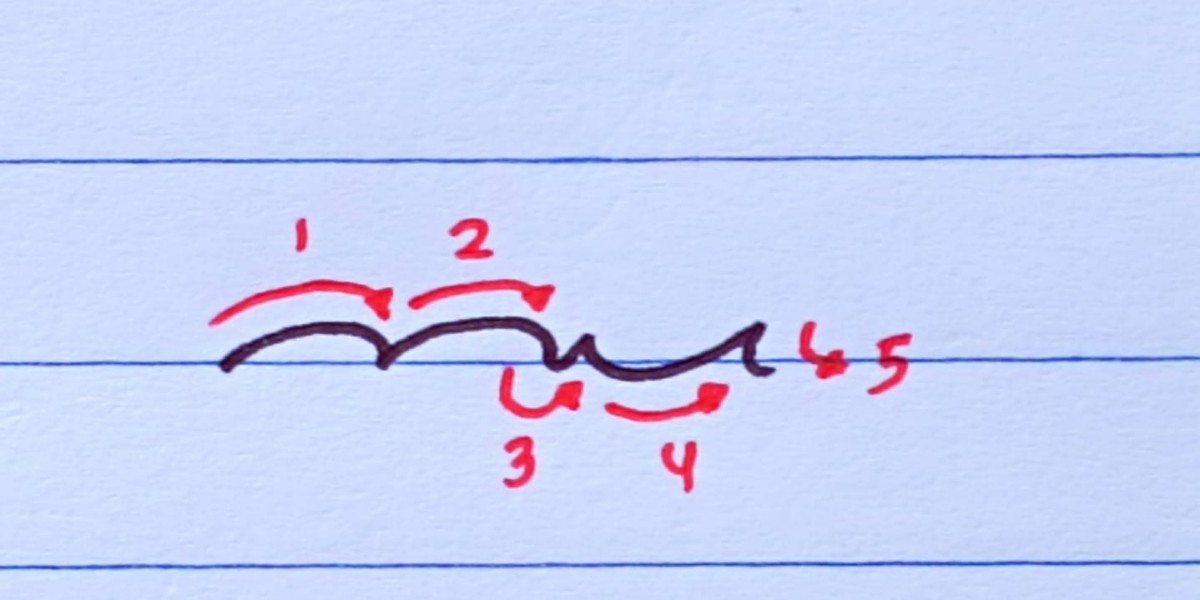 1 2
3 4 5